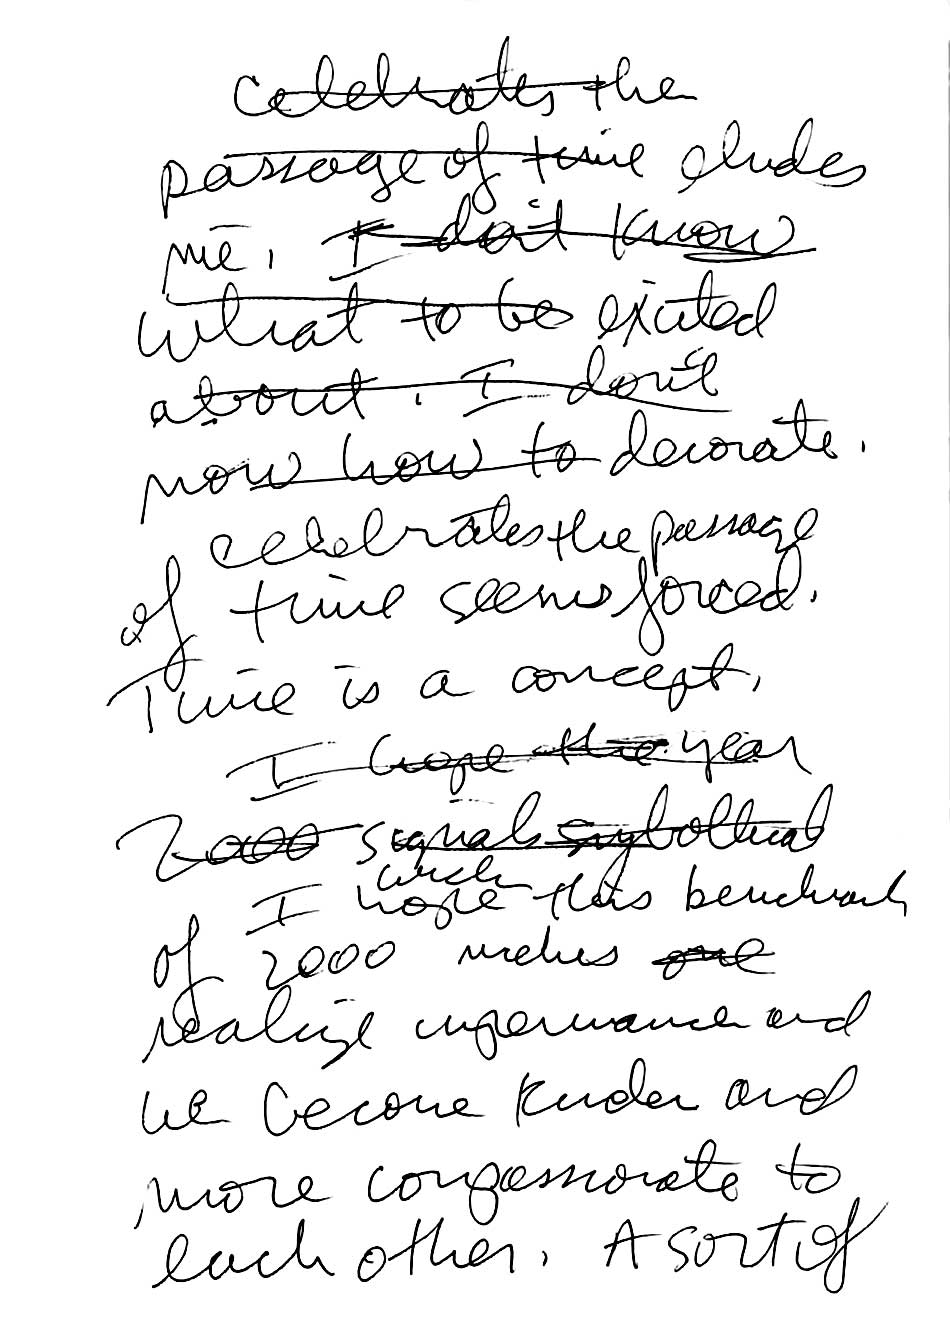 celebrates the
passage of time eludes
me. I don't know
what to be exited
about. I don't
now how to decorate.
celebrates the passage
of time seems forced.
Time is a concept.
I hope the year
2000 signals
wish
I hope this benchmark
of 2000 makes one
realize impermanence and
we become kinder and
more compassionate to
each other. A sort of